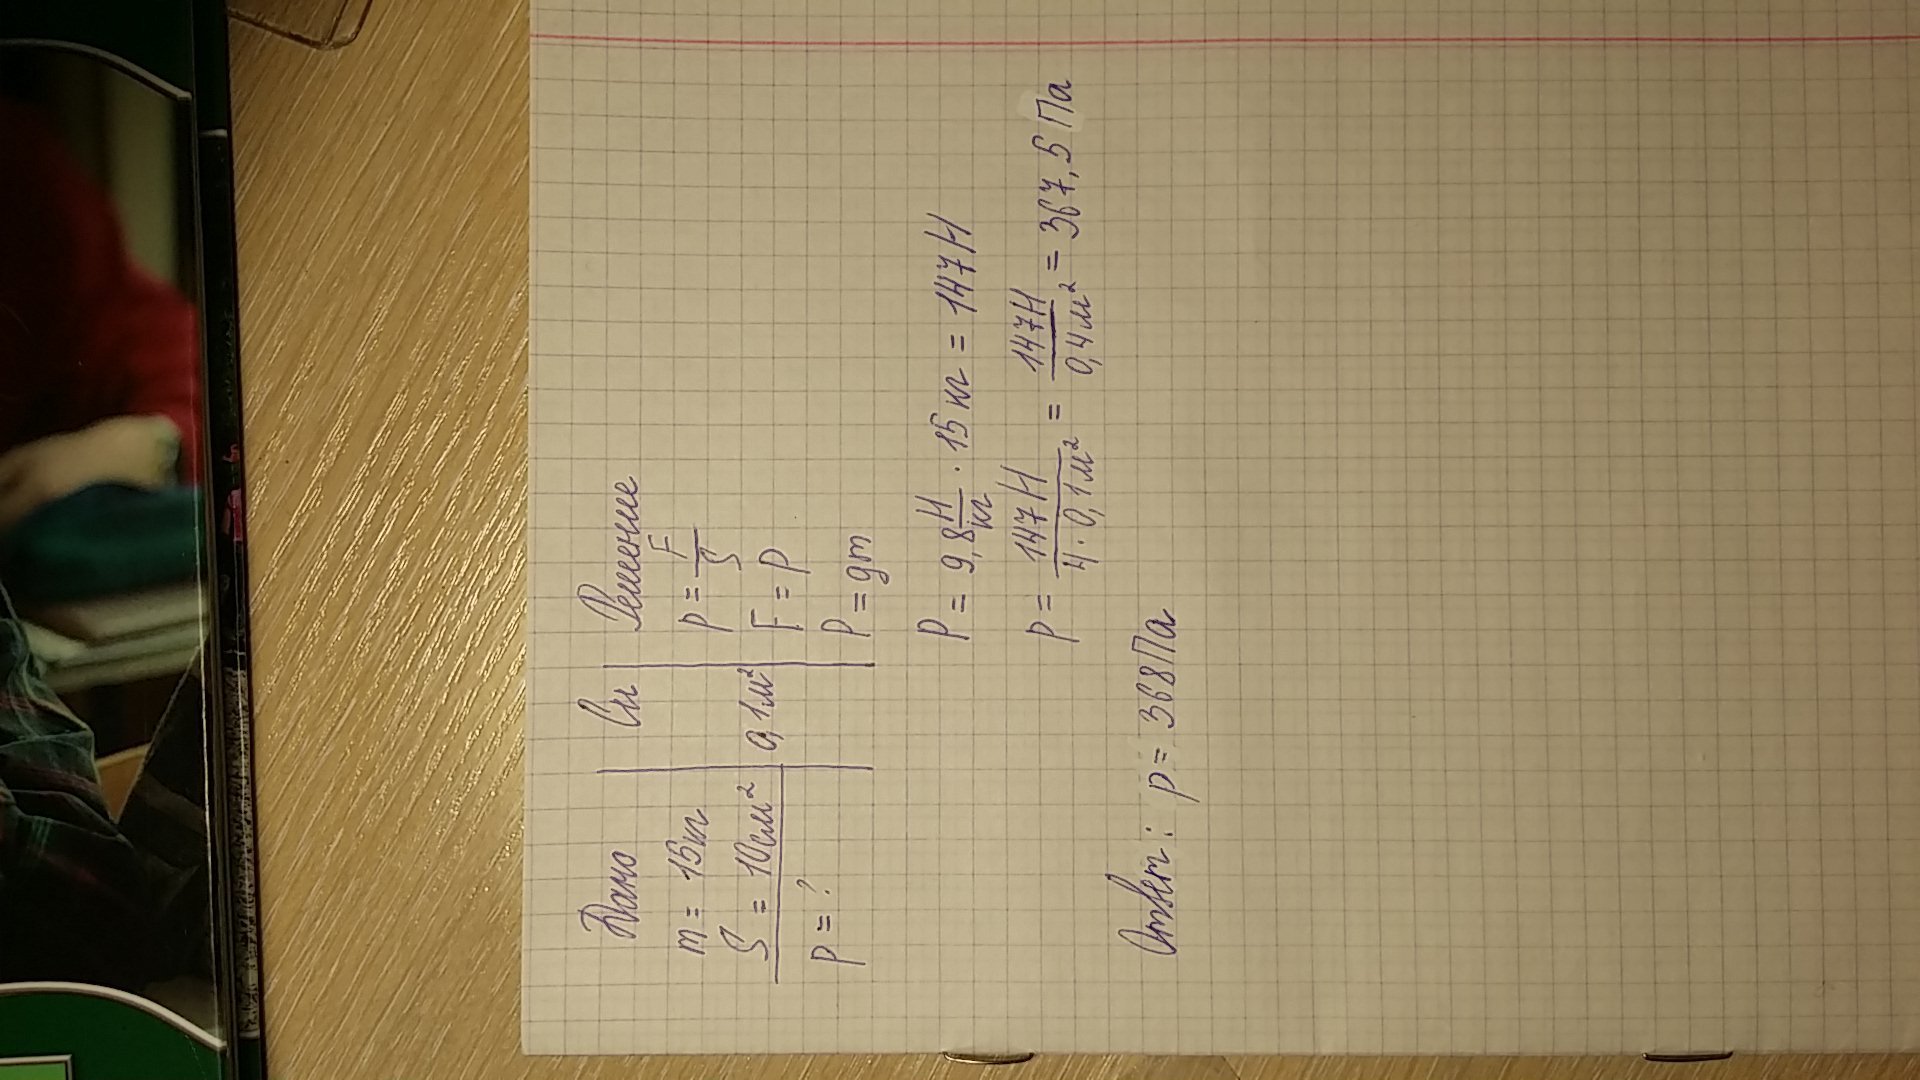 Дано Си Решение
m = 15кг p = F/S
S = 10см² 0,1м² F = P
p = ? P = gm
P = 9,8 Н/кг · 15 кг = 147 Н
p = 147 Н / 4 · 0,1 м² = 147Н / 0,4 м² = 367,5 Па
Ответ: p = 368 Па